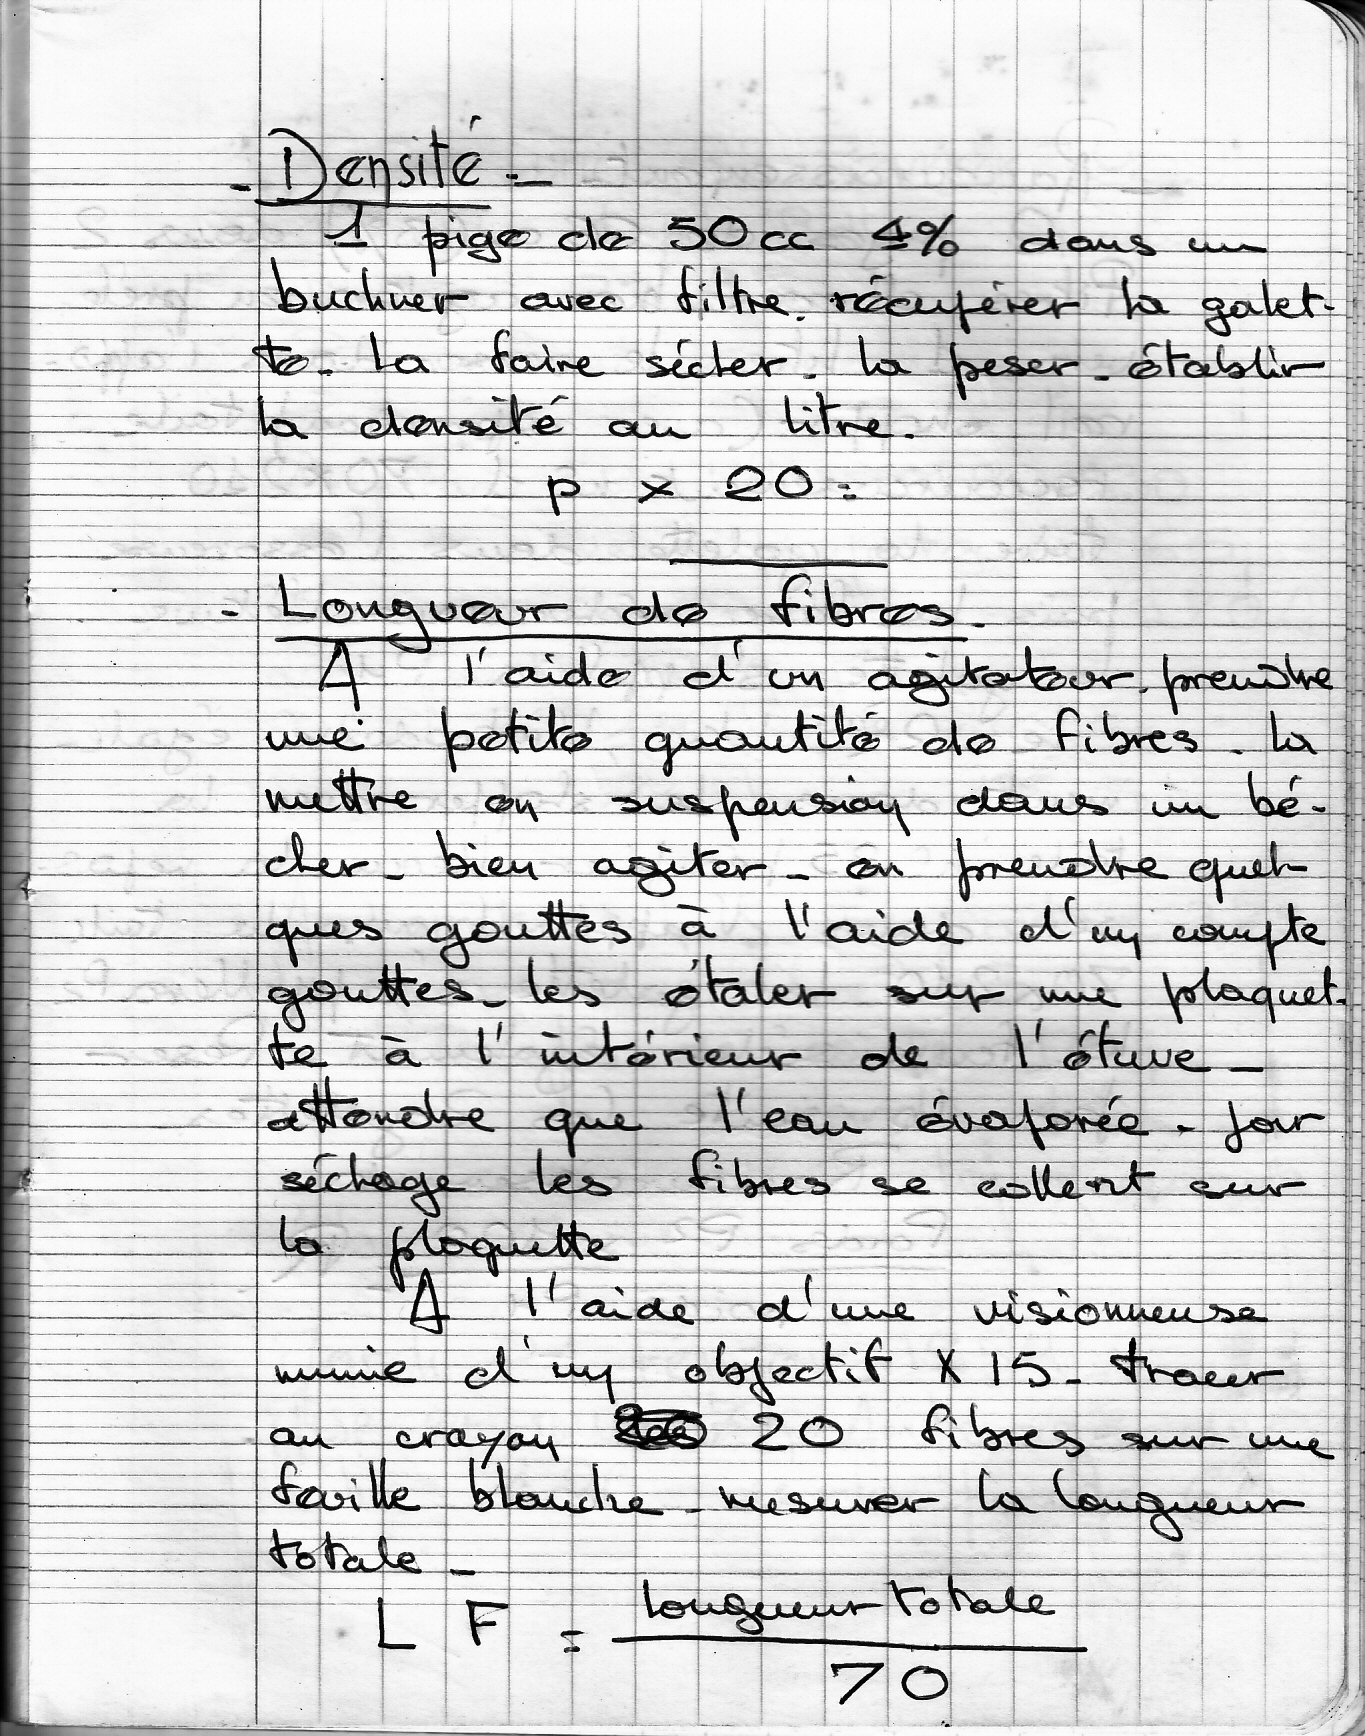 - Densité -
1 pige de 50cc 4% dans un
buchner avec filtre. récupérer la galet-
te. La faire sécher. la peser. établir
la densité au litre.
p x 20 =
- Longueur de fibres.
A l'aide d'un agitateur. prendre
une petite quantité de fibres. la
mettre en suspension dans un bé-
cher. bien agiter. en prendre quel-
ques gouttes à l'aide d'un compte
gouttes. les étaler sur une plaquet-
te à l'intérieur de l'étuve -
attendre que l'eau évaporée. jour
séchage les fibres se collent sur
la plaquette
A l'aide d'une visionneuse
munie d'un objectif X 15 - tracer
au crayon 20 fibres sur une
feuille blanche. mesurer la longueur
totale -
L F = longueur totale
70